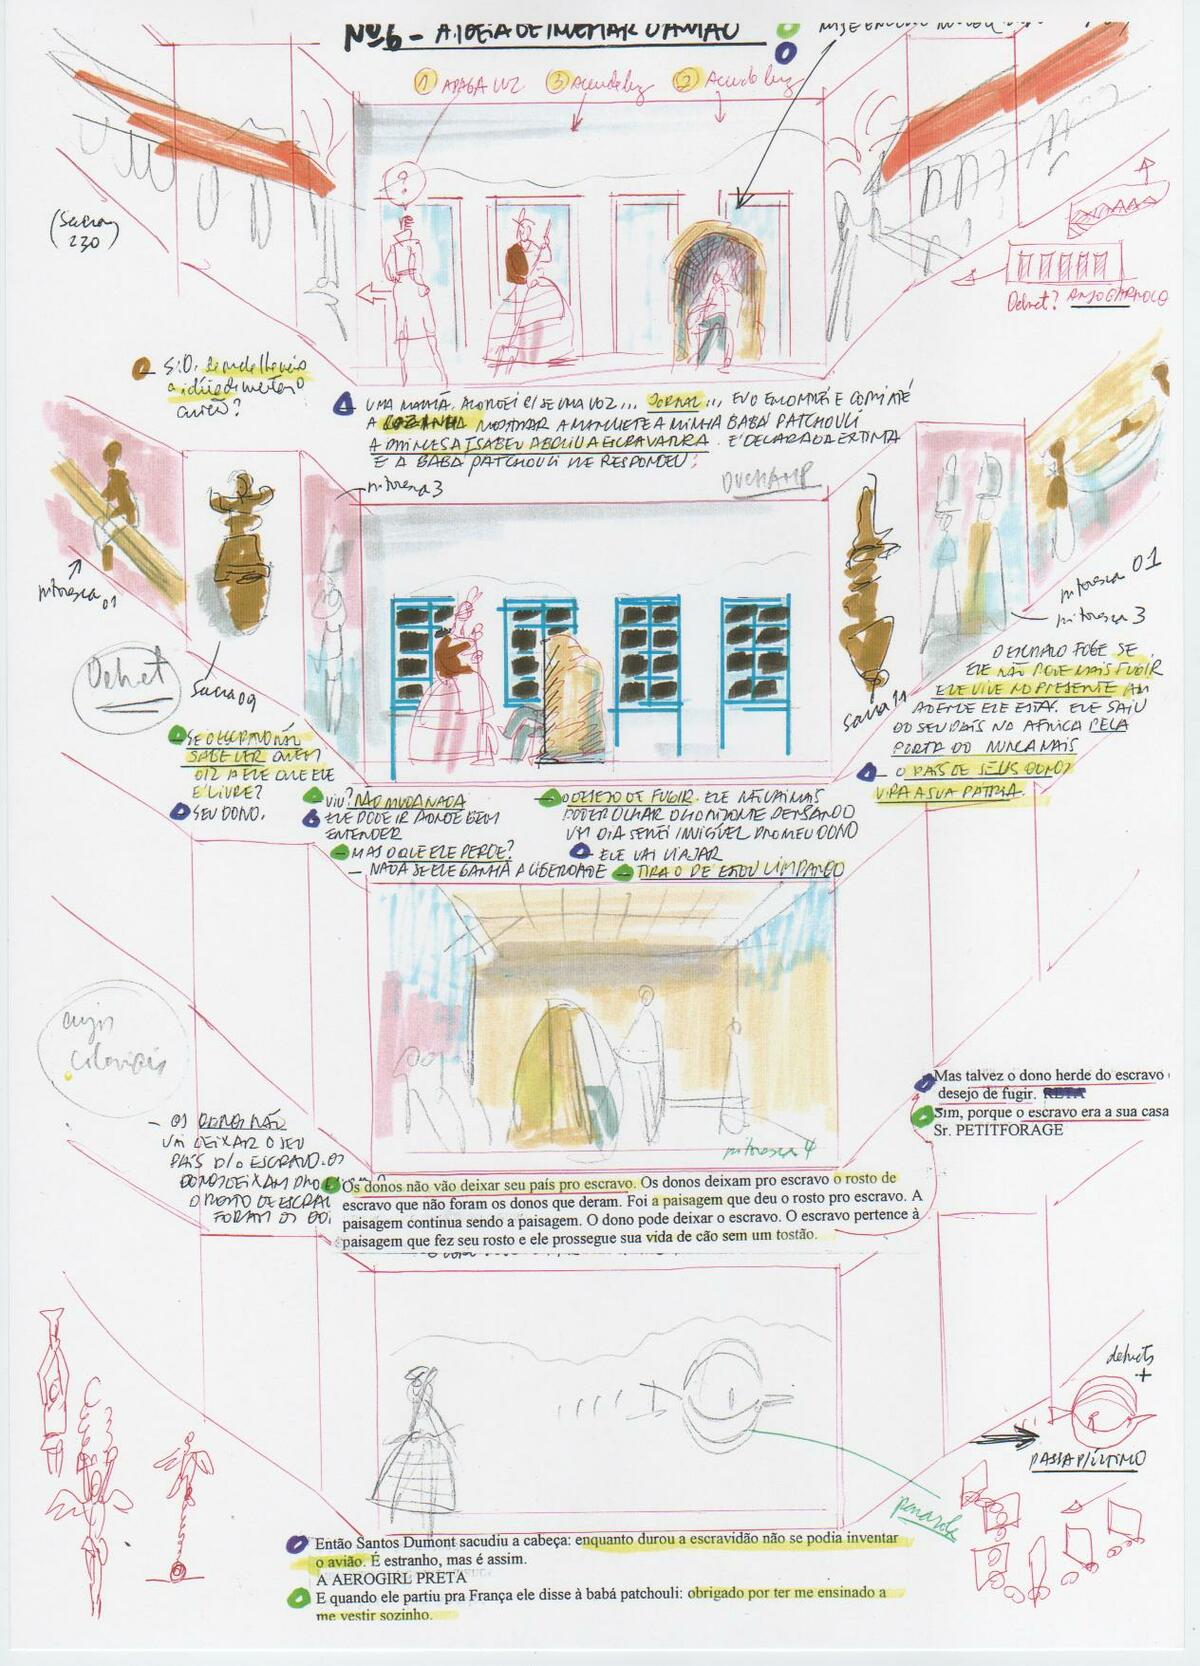 Nº6 - A IDEIA DE INVENTAR O AVIÃO
① APAGA LUZ ③ Acende luz ② Acende luz
(Sacra
230)
Debret?
avião?
UMA MANHÃ, ACORDEI E DISSE UMA VOZ... JORNAL... EU O ENCONTREI E CORRI ATÉ
A COZINHA MOSTRAR A MANCHETE A MINHA BABÁ PATCHOULI
A PRINCESA ISABEL ABOLIU A ESCRAVATURA. E DECLARADA EXTINTA
E A BABÁ PATCHOULI ME RESPONDEU:
DUCHAMP
pitoresca 3
pitoresca 01
pitoresca 01
pitoresca 3
Debret
Sacra 09
Sacra 11
O ESCRAVO FOGE SE
ELE NÃO PODE MAIS FUGIR
ELE VIVE NO PRESENTE
ADERE ELE ESTÁ. ELE SAIU
DO SEU PAÍS NA AFRICA PELA
PORTA DO NUNCA MAIS
- O PAÍS DE SEUS DONOS
VIRA A SUA PÁTRIA.
- SE O ESCRAVO NÃO
SABE LER QUEM
DIZ A ELE QUE ELE
É LIVRE?
- SEU DONO.
- VIU? NÃO MUDA NADA
- ELE PODE IR AONDE BEM
ENTENDER
- MAS O QUE ELE PERDE?
- NADA SE ELE GANHA A LIBERDADE
- O DESEJO DE FUGIR. ELE NÃO VAI MAIS
PODER OLHAR O HORIZONTE PENSANDO
UM DIA SEREI INVISIVEL PRO MEU DONO
- ELE VAI VIAJAR
- TIRA O PÉ ESTOU LIMPANDO
anjos
coloniais
pitoresca 4
Mas talvez o dono herde do escravo o
desejo de fugir.
Sim, porque o escravo era a sua casa
Sr. PETITFORAGE
- OS DONOS NÃO
VAI DEIXAR O SEU
PAÍS P/O ESCRAVO. OS
DONOS DEIXAM PRO
O ROSTO DE ESCRA
FORAM OS DO
Os donos não vão deixar seu país pro escravo. Os donos deixam pro escravo o rosto de
escravo que não foram os donos que deram. Foi a paisagem que deu o rosto pro escravo. A
paisagem continua sendo a paisagem. O dono pode deixar o escravo. O escravo pertence à
paisagem que fez seu rosto e ele prossegue sua vida de cão sem um tostão.
debrets
+
PASSA P/ÚLTIMO
Então Santos Dumont sacudiu a cabeça: enquanto durou a escravidão não se podia inventar
o avião. É estranho, mas é assim.
A AEROGIRL PRETA
E quando ele partiu pra França ele disse à babá patchouli: obrigado por ter me ensinado a
me vestir sozinho.